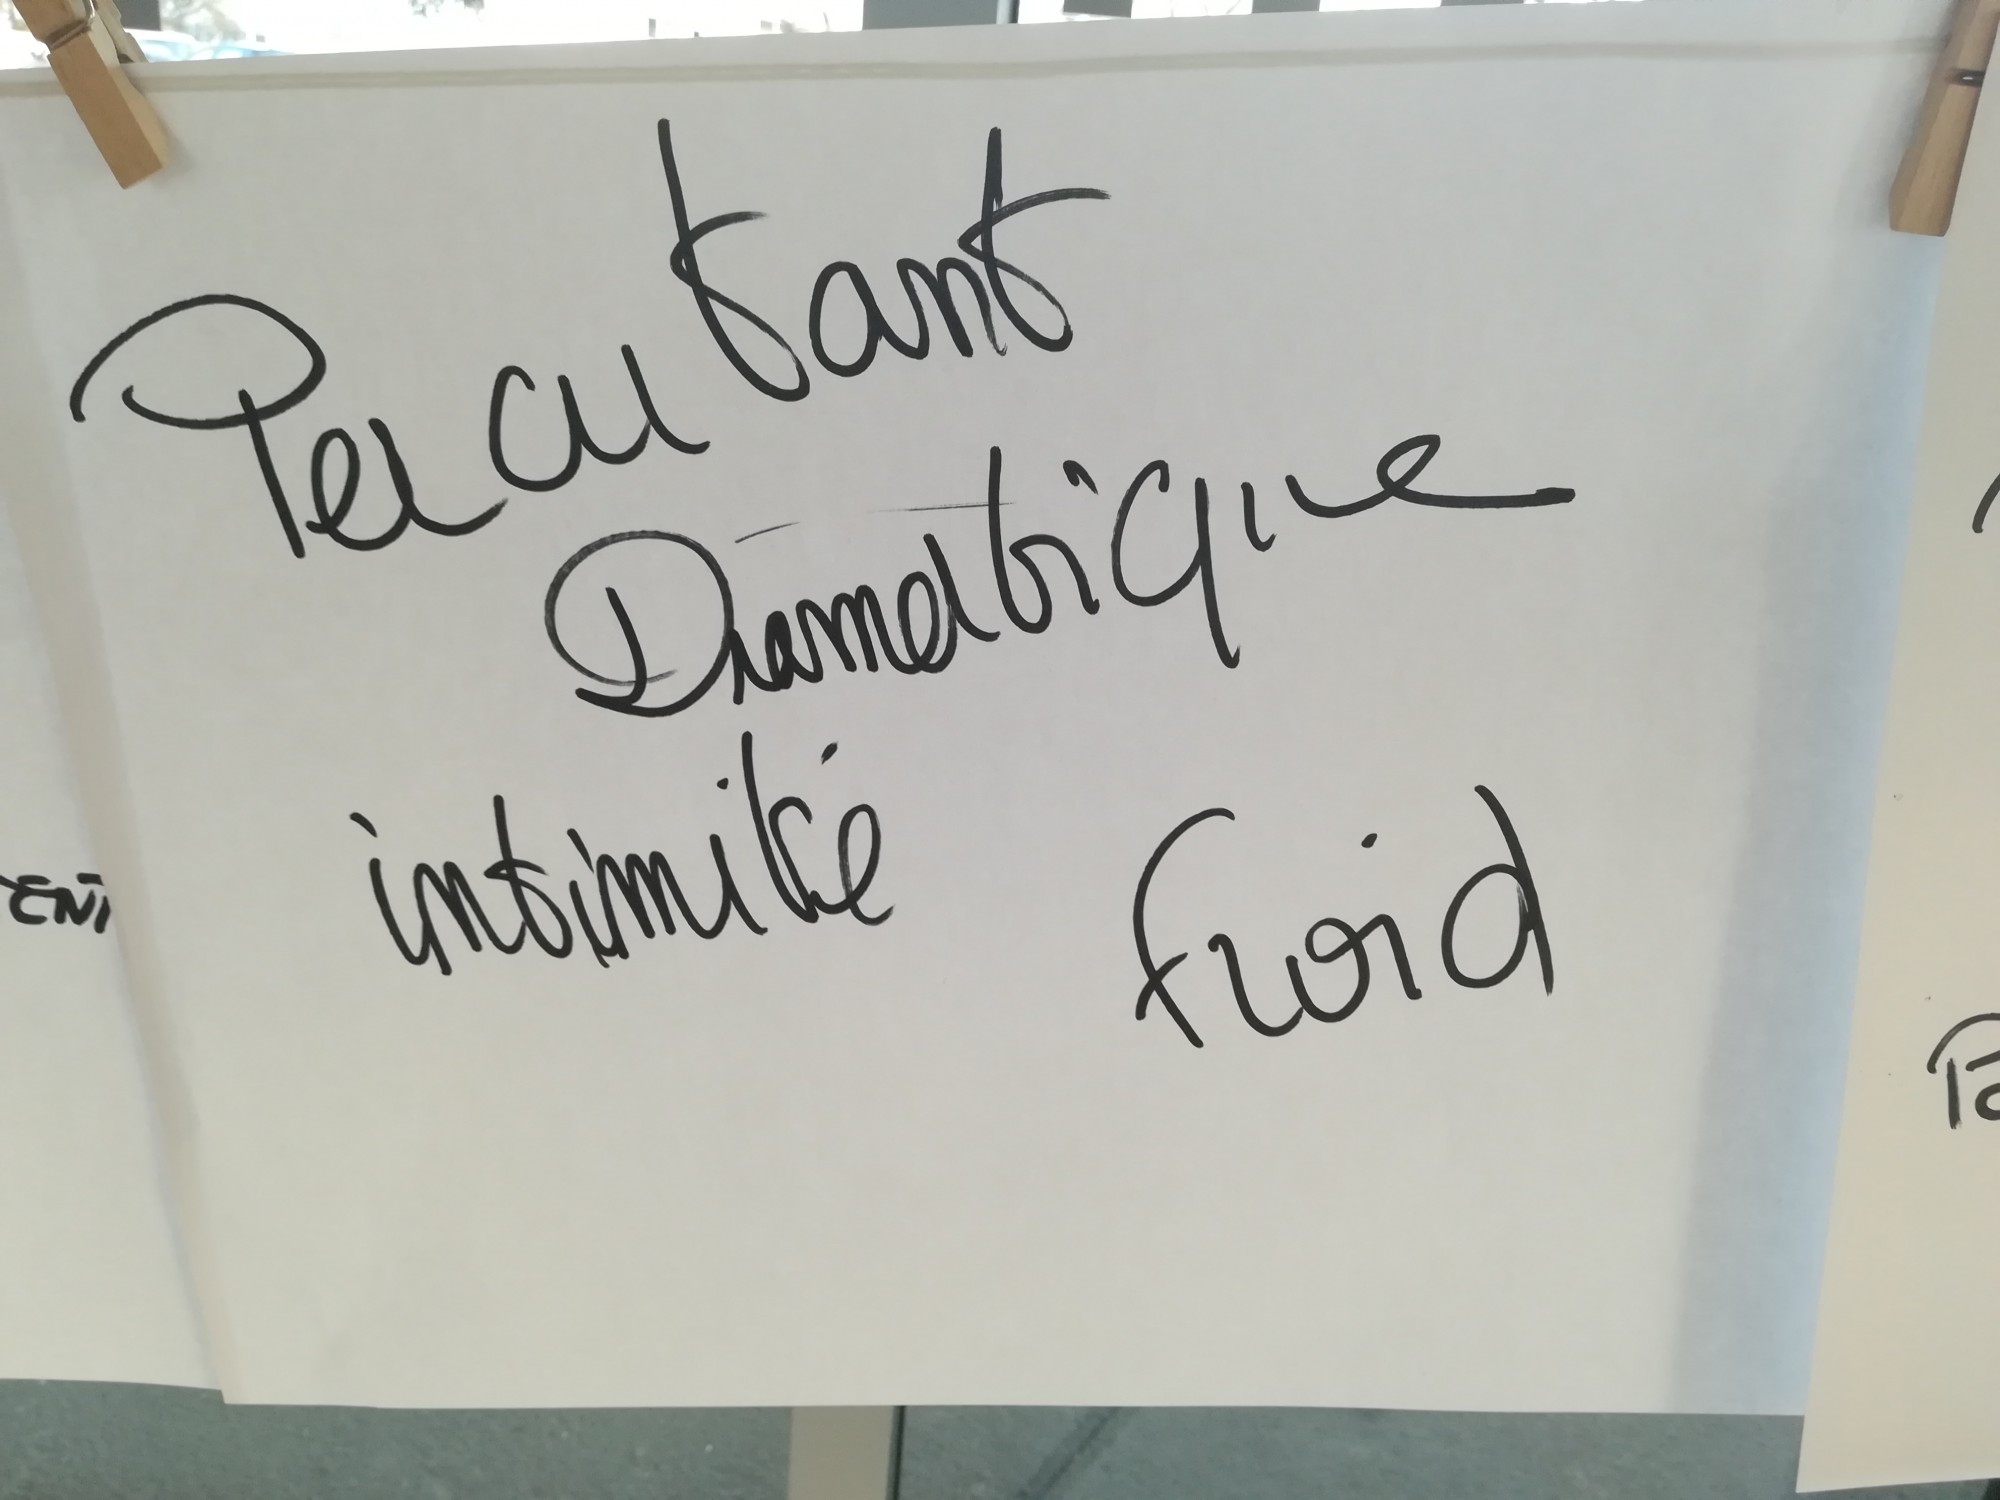 Percutant
Dramatique
intimité
froid